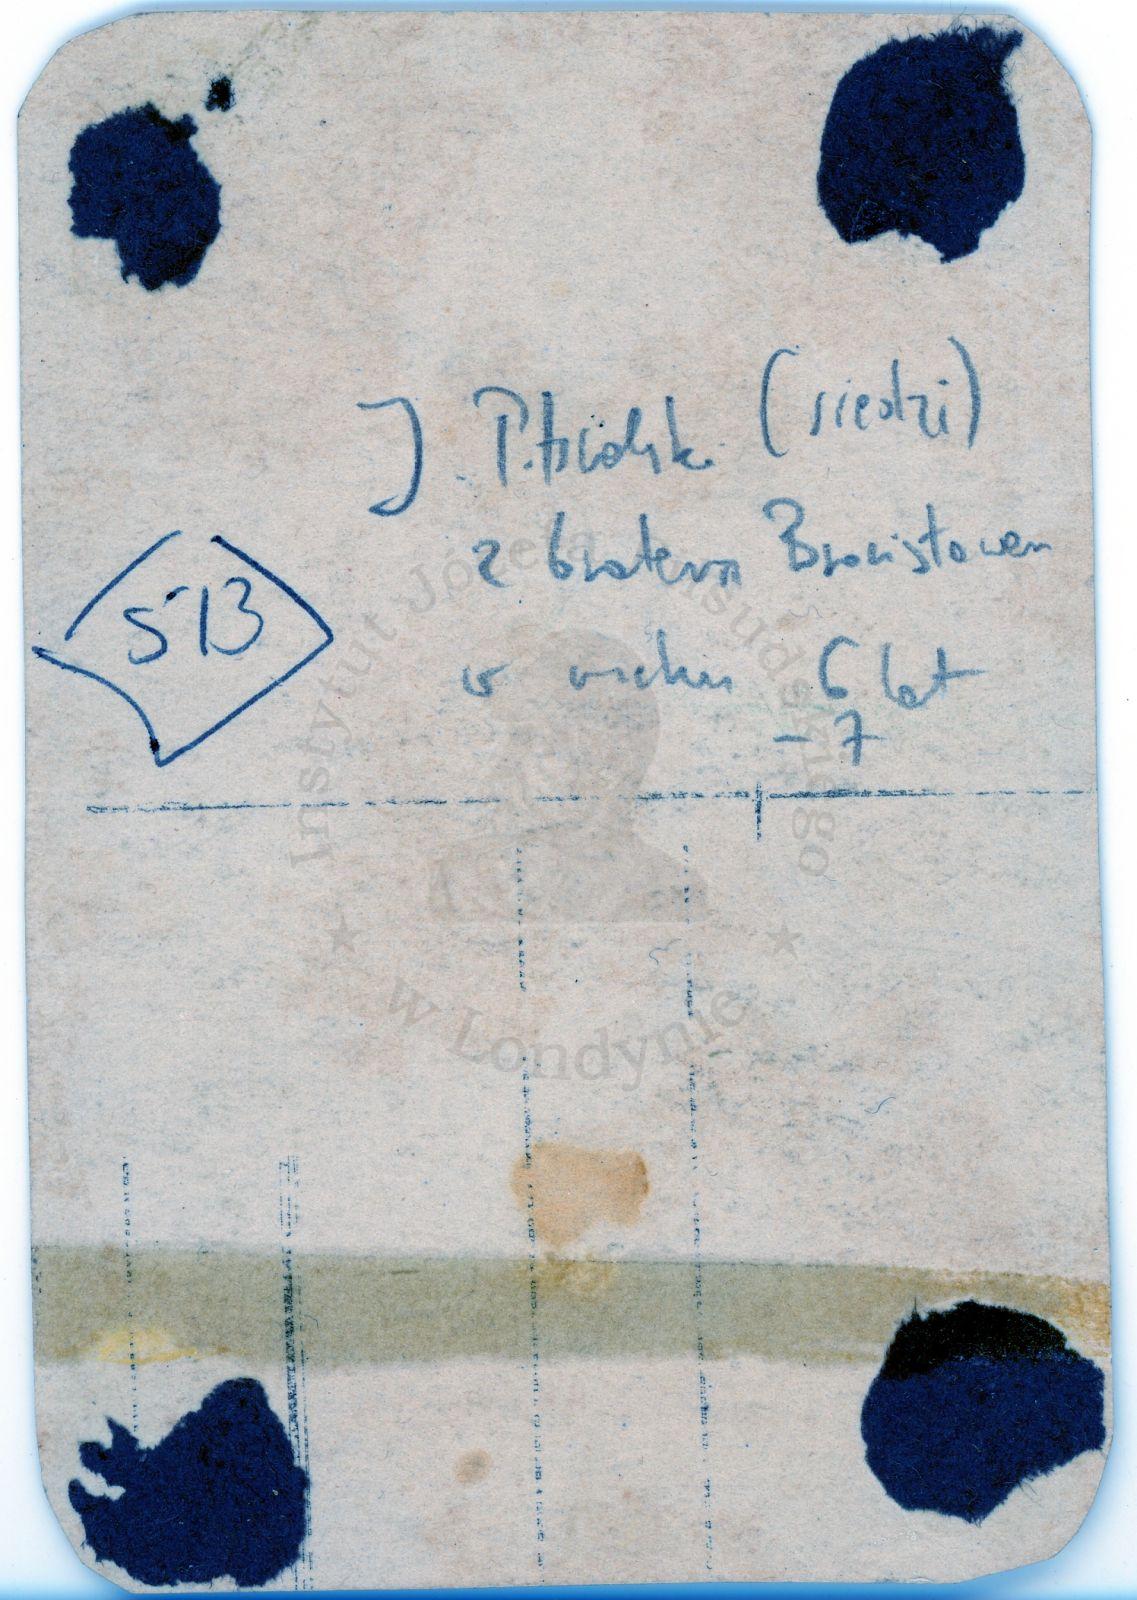 J Piłsudski (siedzi)
z bratem Bronisławem
w wieku 6 lat
– 7
513
Instytut Józefa Piłsudskiego
w Londynie